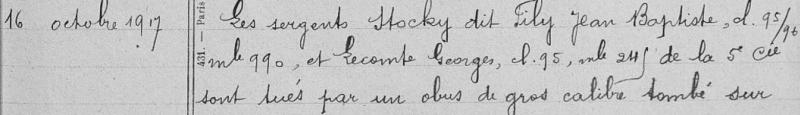 16 octobre 1917 Les sergents Stocky dit Fily Jean Baptiste, cl. 95/96
mle 990, et Lecomte Georges, cl. 95, mle 245 de la 5e Cie
sont tués par un obus de gros calibre tombé sur
431. — Paris